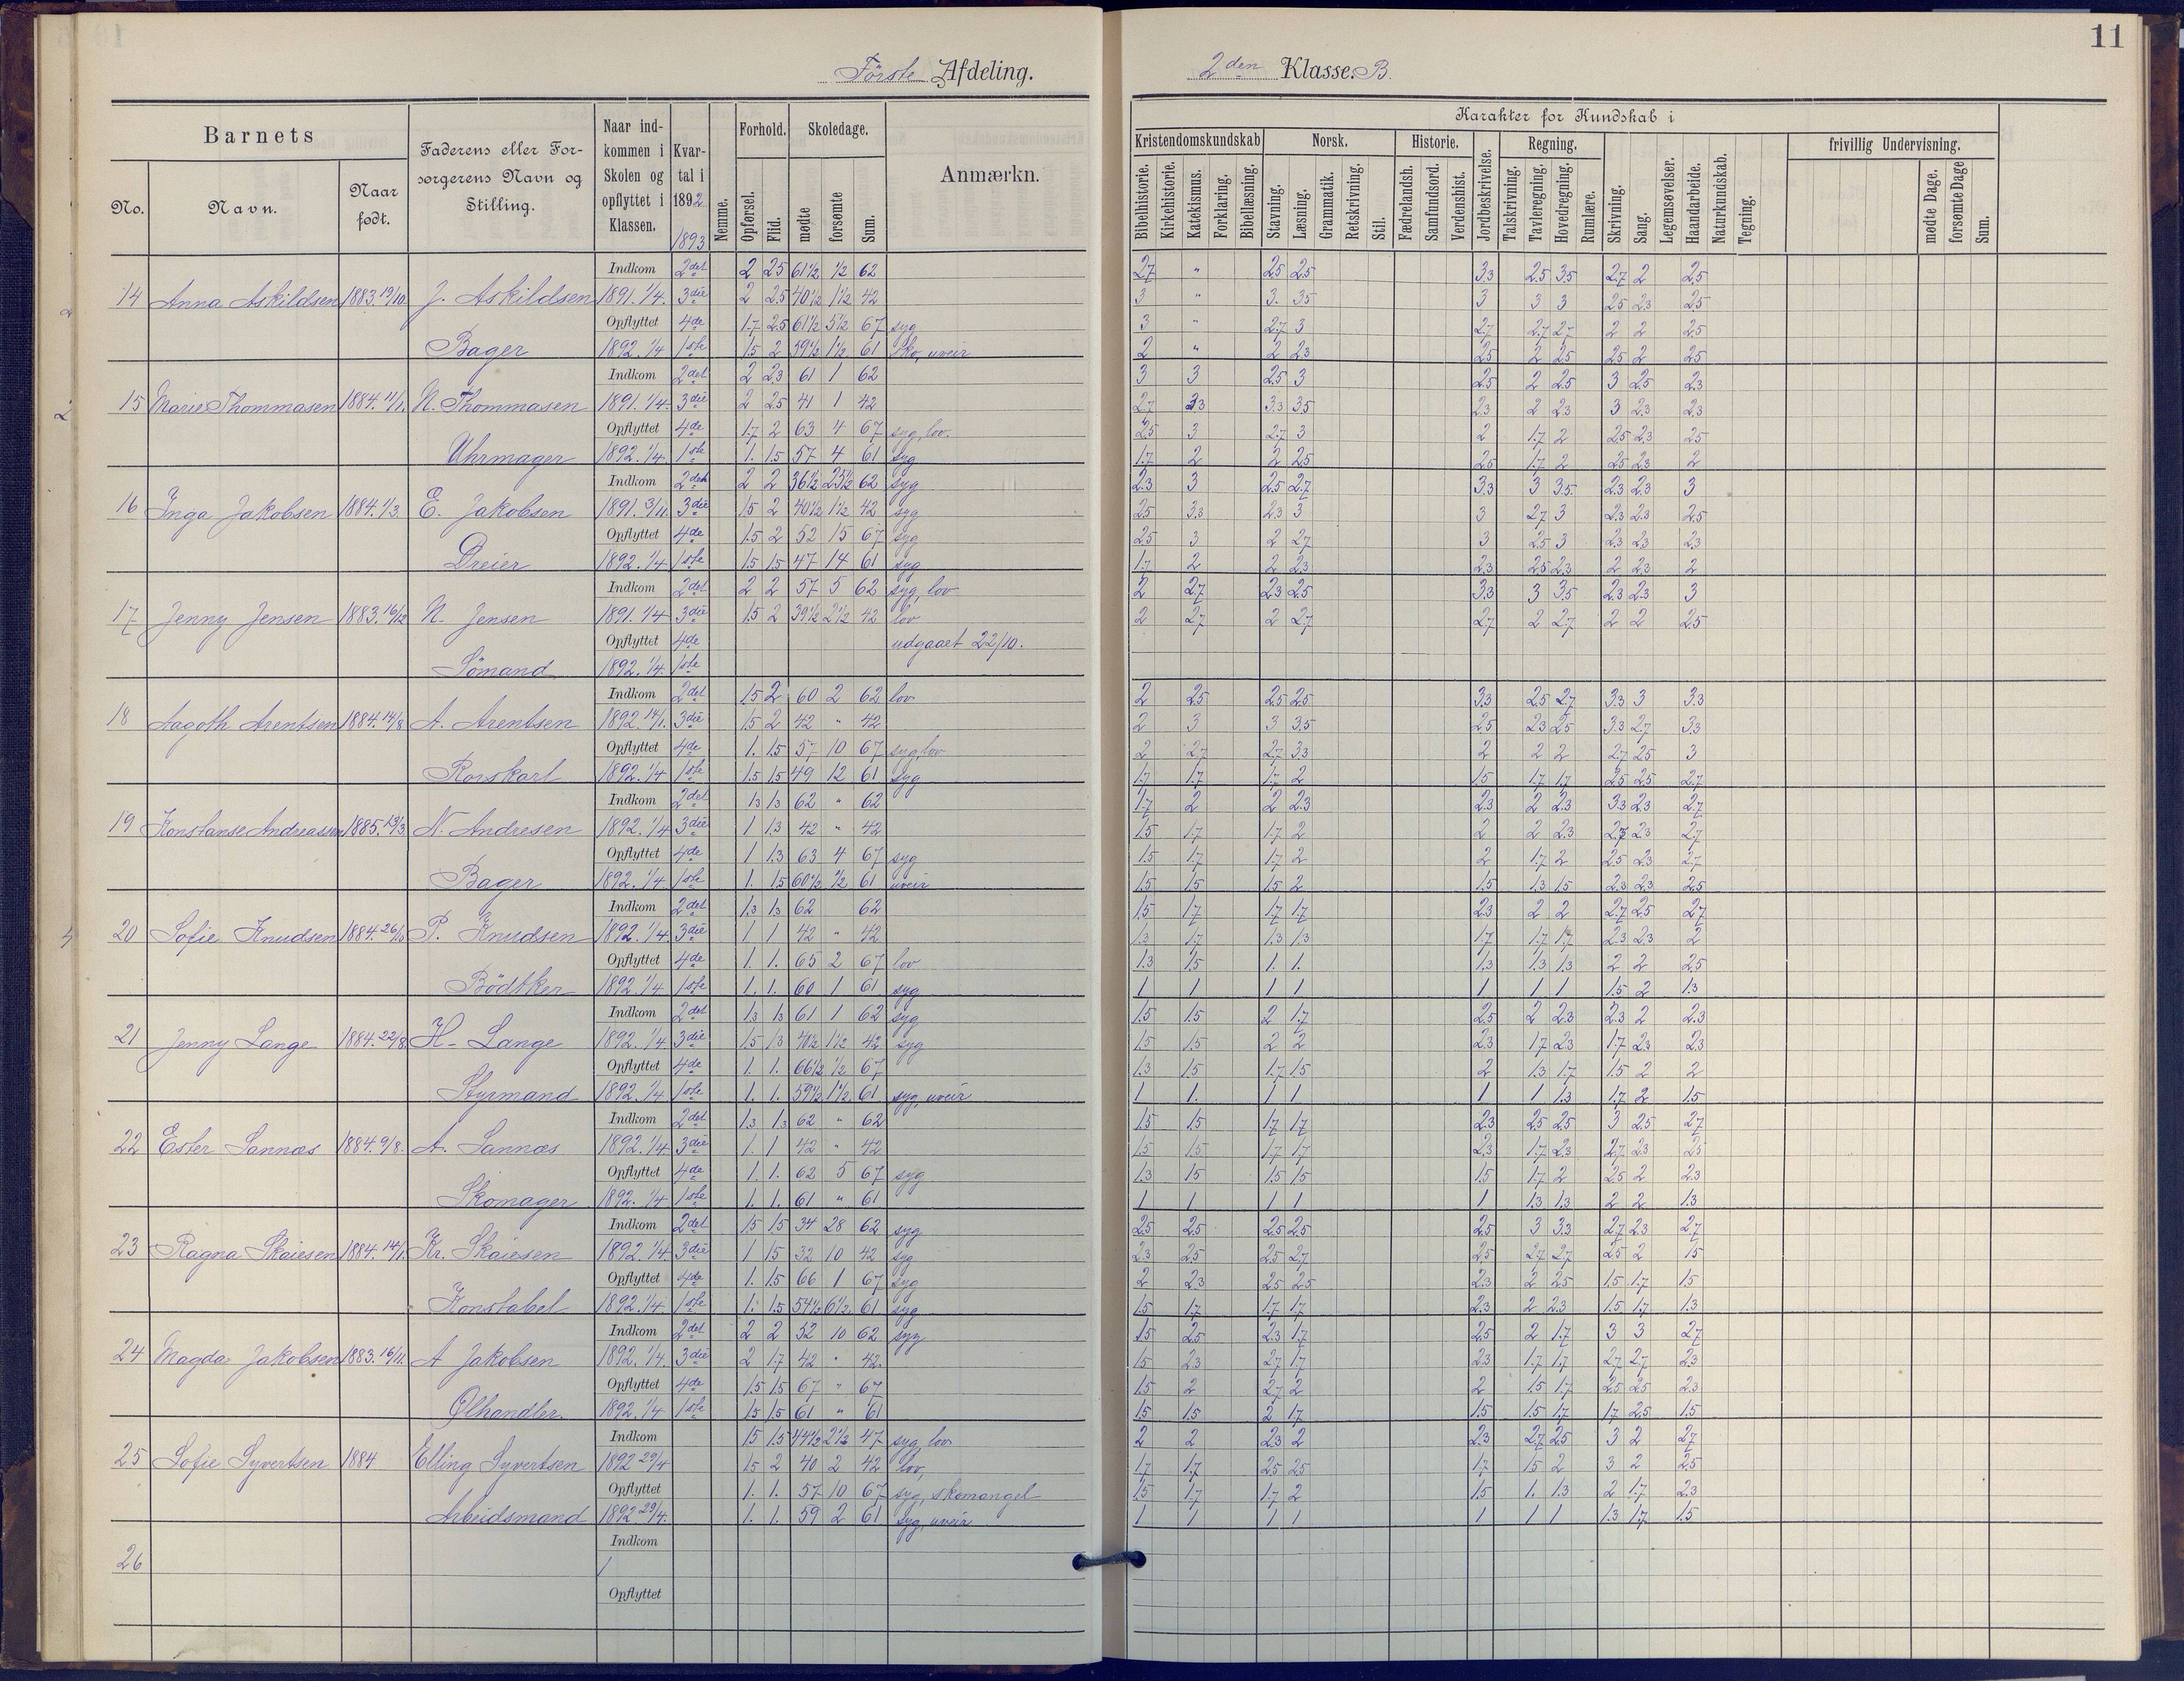 11
Første Afdeling. 2den Klasse. B.
Barnets
No.
Navn.
Naar født.
Faderens eller Forsørgerens Navn og Stilling.
Naar indkommen i Skolen og opflyttet i Klassen.
Kvartal i 1892
1893
Nemme.
Forhold.
Opførsel.
Flid.
Skoledage.
mødte
forsømte
Sum.
Anmærkn.
Karakter for Kundskab i
Kristendomskundskab
Bibelhistorie.
Kirkehistorie.
Katekismus.
Forklaring.
Bibellæsning.
Norsk.
Stavning.
Læsning.
Grammatik.
Retskrivning.
Stil.
Historie.
Fædrelandsh.
Samfundsord.
Verdenshist.
Jordbeskrivelse.
Regning.
Talskrivning.
Tavleregning.
Hovedregning.
Rumlære.
Skrivning.
Sang.
Legemsøvelser.
Haandarbeide.
Naturkundskab.
Tegning.
frivillig Undervisning.
mødte Dage.
forsømte Dage
Sum.
Indkom 2det 2 2.5 61½ ½ 62 2.7 " 2.5 2.5 3.3 2.5 3.5 2.7 2 2.5
14 Anna Askildsen 1883. 19/10 J. Askildsen 1891. 1/4. 3die 2 2.5 40½ 1½ 42 3 " 3. 3.5 3 3 3 2.5 2.3 2.5
Opflyttet 4de 1.7 2.5 61½ 5½ 67 syg 3 " 2.7 3 2.7 2.7 2.7 2 2 2.5
Bager 1892. 1/4 1ste 1.5 2 59½ 1½ 61 sko, uveir 2 " 2 2.3 2.5 2 2.5 2.5 2 2.5
Indkom 2det 2 2.3 61 1 62 3 3 2.5 3 2.5 2 2.5 3 2.5 2.3
15 Marie Thommasen 1884. 11/1. N. Thommasen 1891. 1/4. 3die 2 2.5 41 1 42 2.7 3.3 3.3 3.5 2.3 2 2.3 3 2.3 2.3
Opflyttet 4de 1.7 2 63 4 67 syg, lov. 2.5 3 2.7 3 2 1.7 2 2.5 2.3 2.5
Uhrmager 1892. 1/4. 1ste 1. 1.5 57 4 61 syg 1.7 2 2 2.5 2.5 1.7 2 2.5 2.3 2
Indkom 2det 2 2 36½ 25½ 62 syg 2.3 3 2.5 2.7 3.3 3 3.5 2.3 2.3 3
16 Inga Jakobsen 1884. 1/3. E. Jakobsen 1891. 3/11. 3die 1.5 2 40½ 1½ 42 syg 2.5 3.3 2.3 3 3 2.7 3 2.3 2.3 2.5
Opflyttet 4de 1.5 2 52 15 67 syg 2.5 3 2 2.7 3 2.5 3 2.3 2.3 2.3
Dreier 1892. 1/4 1ste 1.5 1.5 47 14 61 syg 1.7 2 2 2.3 2.3 2.5 2.3 2 2.3 2
Indkom 2det 2 2 57 5 62 syg, lov 2 2.7 2.3 2.5 3.3 3 3.5 2.3 2.3 3
17 Jenny Jensen 1883. 16/12 N. Jensen 1891. 1/4 3die 1.5 2 39½ 2½ 42 lov 2 2.7 2 2.7 2.7 2 2.7 2 2 2.5
Opflyttet 4de udgaaet 22/10.
Sömand 1892. 1/4. 1ste
Indkom 2det 1.5 2 60 2 62 lov 2 2.5 2.5 2.5 3.3 2.5 2.7 3.3 3 3.3
18 Aagoth Arentsen 1884. 14/8 A. Arentsen 1892. 14/1. 3die 1.5 2 42 " 42 2 3 3 3.5 2.5 2.3 2.5 3.3 2.7 3.3
Opflyttet 4de 1. 1.5 57 10 67 syg, lov 2 2.7 2.7 3.3 2 2 2 2.7 2.5 3
Rorskarl 1892. 1/4 1ste 1.5 1.5 49 12 61 syg 1.7 1.7 1.7 2 1.5 1.7 1.7 2.5 2.5 2.7
Indkom 2det 1.3 1.3 62 " 62 1.7 2 2 2.3 2.3 2 2.3 3.3 2.3 2.7
19 Konstanse Andreassen 1885. 13/3 N. Andresen 1892. 1/4 3die 1 1.3 42 " 42 1.5 1.7 1.7 2 2 2 2.3 2.3 2.7
Opflyttet 4de 1 1.3 63 4 67 syg 1.5 1.7 1.7 2 2 1.7 2 2.5 2.3 2.7
Bager 1892. 1/4. 1ste 1. 1.5 60½ ½ 61 uveir 1.5 1.5 1.5 2 1.5 1.3 1.5 2.3 2.3 2.5
Indkom 2det 1.3 1.3 62 62 1.5 1.7 1.7 1.7 2.3 2 2 2.7 2.5 2.7
20 Sofie Knudsen 1884. P. Knudsen 1892. 1/4. 3die 1 1 42 " 42 1.3 1.7 1.3 1.3 1.7 1.7 1.7 2.3 2.3 2
Opflyttet 4de 1. 1. 65 2 67 lov 1.3 1.5 1. 1. 1.3 1.3 1.3 2 2 2.5
Bödtker 1892. 1/4 1ste 1. 1. 60 1 61 syg 1 1 1 1 1 1 1 1.5 2 1.3
Indkom 2det 1.3 1.3 61 1 62 syg 1.5 1.5 2 1.7 2.5 2 2.3 2.3 2 2.3
21 Jenny Lange 1884. 22/8. H. Lange 1892. 1/4. 3die 1.5 1.3 40½ 1½ 42 syg 1.5 1.5 2 2 2.3 1.7 2.3 1.7 2.3 2.3
Opflyttet 4de 1. 1. 66½ ½ 67 1.3 1.5 1.7 1.5 2 1.3 1.7 1.5 2 2
Styrmand 1892. 1/4 1ste 1. 1. 59½ 1½ 61 syg, uveir 1 1. 1 1 1 1 1.3 1.7 2 1.5
Indkom 2det 1.3 1.3 62 " 62 1.5 1.5 1.7 1.7 2.3 2.5 2.5 3 2.5 2.7
22 Ester Sannæs 1884. 9/8. A. Sannæs 1892. 1/4. 3die 1. 1 42 " 42 1.5 1.5 1.7 1.7 2.3 1.7 2.3 2.7 2.3 2.5
Opflyttet 4de 1. 1. 62 5 67 syg 1.3 1.5 1.5 1.5 1.5 1.7 2 2.5 2 2.3
Skomager 1892. 1/4 1ste 1. 1. 61 " 61 1 1 1 1 1 1.3 1.3 2 2 1.3
Indkom 2det 1.5 1.5 34 28 62 syg 2.5 2.5 2.5 2.5 2.5 3 3.3 2.7 2.3 2.7
23 Ragna Skaiesen 1884. 14/1. Kr. Skaiesen 1892. 1/4 3die 1 1.5 32 10 42 syg 2.3 2.5 2.5 2.7 2.5 2.7 2.7 2.5 2 1.5
Opflyttet 4de 1. 1.5 66 1 67 syg 2 2.3 2.5 2.5 2.3 2 2.5 1.5 1.7 1.5
Konstabel 1892. 1/4. 1ste 1. 1.5 54½ 6½ 61 syg 1.5 1.7 1.7 1.7 2.3 2 2.3 1.5 1.7 1.3
Indkom 2det 2 2 52 10 62 syg 1.5 2.5 2.3 1.7 2.5 2 1.7 3 3 2.7
24 Magda Jakobsen 1883. 16/11. A Jakobsen 1892. 1/4. 3die 2 1.7 42 " 42. 1.5 2.3 2.7 1.7 2.3 1.7 1.7 2.7 2.7 2.3
Opflyttet 4de 1.5 1.5 67 " 67 1.5 2 2.7 2 2 1.5 1.7 2.5 2.5 2.3
Ølhandler. 1892. 1/4 1ste 1.5 1.5 61 " 61 1.5 1.5 2 1.7 1.5 1.5 1.7 1.7 2.5 1.5
Indkom 1.5 1.5 44½ 2½ 47 syg, lov 2 2 2.3 2 2.3 2.7 2.5 3 2 2.7
25 Sofie Syvertsen 1884 Elling Syvertsen 1892 29/4 1.5 2 40 2 42 lov, 1.7 1.7 2.5 2.5 1.7 1.5 2 3 2 2.5
Opflyttet 1. 1. 57 10 67 syg, skomangel 1.5 1.7 1.7 2 1.5 1. 1.3 2 1.7 2.3
Arbeidsmand 1892 29/4. 1. 1. 59 2 61 syg, uveir 1 1 1 1 1 1 1 1.3 1.7 1.5
Indkom
26
Opflyttet